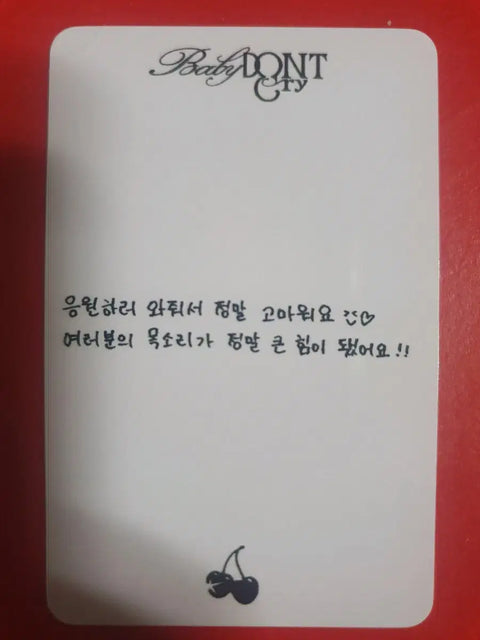 Baby DONT Cry
응원하러 와줘서 정말 고마워요 :)♡
여러분의 목소리가 정말 큰 힘이 됐어요!!